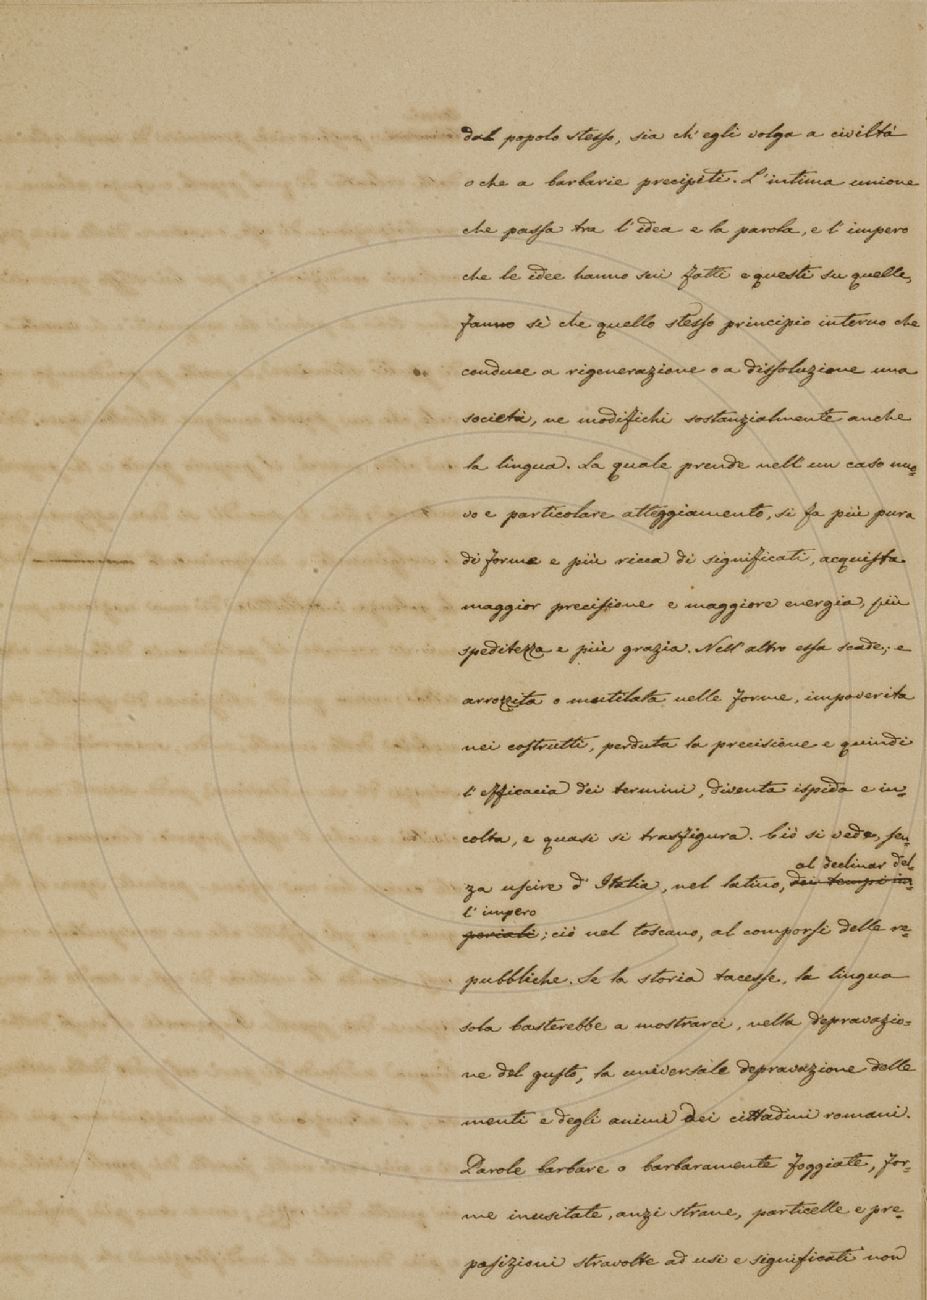 dal popolo stesso, sia ch'egli volga a civiltà
o che a barbarie precipiti. L'intima unione
che passa tra l'idea e la parola, e l'impero
che le idee hanno sui fatti e questi su quelle,
fanno sì che quello stesso principio interno che
conduce a rigenerazione o a dissoluzione una
società, ne modifichi sostanzialmente anche
la lingua. La quale prende nell'un caso nuo=
vo e particolare atteggiamento, si fa più pura
di forme e più ricca di significati, acquista
maggior precisione e maggiore energia, più
speditezza e più grazia. Nell'altro essa scade; e
arrozzita o mutilata nelle forme, impoverita
nei costrutti, perduta la precisione e quindi
l'efficacia dei termini, diventa ispida e in=
colta, e quasi si trasfigura. Ciò si vede, sen=
al declinar del=
za uscire d'Italia, nel latino, dei tempi im=
l'impero
periali; ciò nel toscano, al comporsi delle re=
pubbliche. Se la storia tacesse, la lingua
sola basterebbe a mostrarci, nella depravazio=
ne del gusto, la universale depravazione delle
menti e degli animi dei cittadini romani.
Parole barbare o barbaramente foggiate, for=
me inusitate, anzi strane, particelle e pre=
posizioni stravolte ad usi e significati non